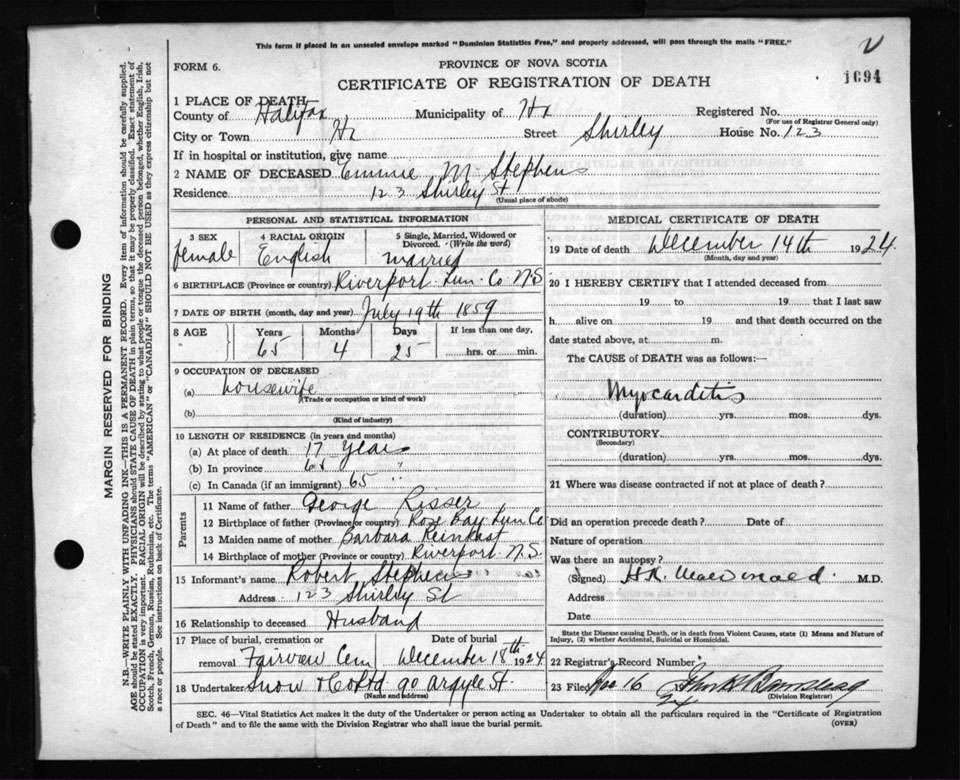 This form if placed in an unsealed envelope marked "Dominion Statistics Free," and properly addressed, will pass through the mails "FREE."
FORM 6.
PROVINCE OF NOVA SCOTIA
CERTIFICATE OF REGISTRATION OF DEATH
1694
1 PLACE OF DEATH
County of Halifax Municipality of Hx Registered No.
(For use of Registrar General only)
City or Town Hx Street Shirley House No. 123
If in hospital or institution, give name
2 NAME OF DECEASED Emmie M. Stephens
Residence 123 Shirley St
(Usual place of abode)
PERSONAL AND STATISTICAL INFORMATION
3 SEX
female
4 RACIAL ORIGIN
English
5 Single, Married, Widowed or Divorced. (Write the word)
married
6 BIRTHPLACE (Province or country) Riverport Lun. Co N.S
7 DATE OF BIRTH (month, day and year) July 19th 1859
8 AGE Years Months Days If less than one day,
65 4 25 hrs. or min.
9 OCCUPATION OF DECEASED
(a) housewife
(Trade or occupation or kind of work)
(b)
(Kind of industry)
10 LENGTH OF RESIDENCE (in years and months)
(a) At place of death 17 Years
(b) In province 65 "
(c) In Canada (if an immigrant) 65 "
Parents
11 Name of father George Risser
12 Birthplace of father (Province or country) Rose Bay Lun Co
13 Maiden name of mother Barbara Reinhast
14 Birthplace of mother (Province or country) Riverport N.S.
15 Informant's name Robert Stephens
Address 123 Shirley St
16 Relationship to deceased Husband
17 Place of burial, cremation or removal Date of burial
Fairview Cem December 18th 1924
18 Undertaker Snow & Co Ltd 90 Argyle St.
(Name and address)
MEDICAL CERTIFICATE OF DEATH
19 Date of death December 14th 1924
(Month, day and year)
20 I HEREBY CERTIFY that I attended deceased from
19 to 19 that I last saw
h alive on 19 and that death occurred on the
date stated above, at m.
The CAUSE of DEATH was as follows:—
Myocarditis
(duration) yrs. mos. dys.
CONTRIBUTORY
(Secondary)
(duration) yrs. mos. dys.
21 Where was disease contracted if not at place of death?
Did an operation precede death? Date of
Nature of operation
Was there an autopsy?
(Signed) M.D.
Address
Date
State the Disease causing Death, or in death from Violent Causes, state (1) Means and Nature of Injury, (2) whether Accidental, Suicidal or Homicidal.
22 Registrar's Record Number
23 Filed 16
(Division Registrar)
SEC. 46—Vital Statistics Act makes it the duty of the Undertaker or person acting as Undertaker to obtain all the particulars required in the "Certificate of Registration
of Death" and to file the same with the Division Registrar who shall issue the burial permit.
(OVER)
MARGIN RESERVED FOR BINDING
N.B.—WRITE PLAINLY WITH UNFADING INK—THIS IS A PERMANENT RECORD. Every item of information should be carefully supplied.
AGE should be stated EXACTLY. PHYSICIANS should STATE CAUSE OF DEATH in plain terms, so that it may be properly classified. Exact statement of
OCCUPATION is very important. RACIAL ORIGIN will be described by stating to what people or tongue the deceased person belonged, whether English, Irish,
Scotch, French, German, Russian, Ruthenian, etc. The terms "AMERICAN" or "CANADIAN" SHOULD NOT BE USED as they express citizenship but not
a race or people. See instructions on back of Certificate.